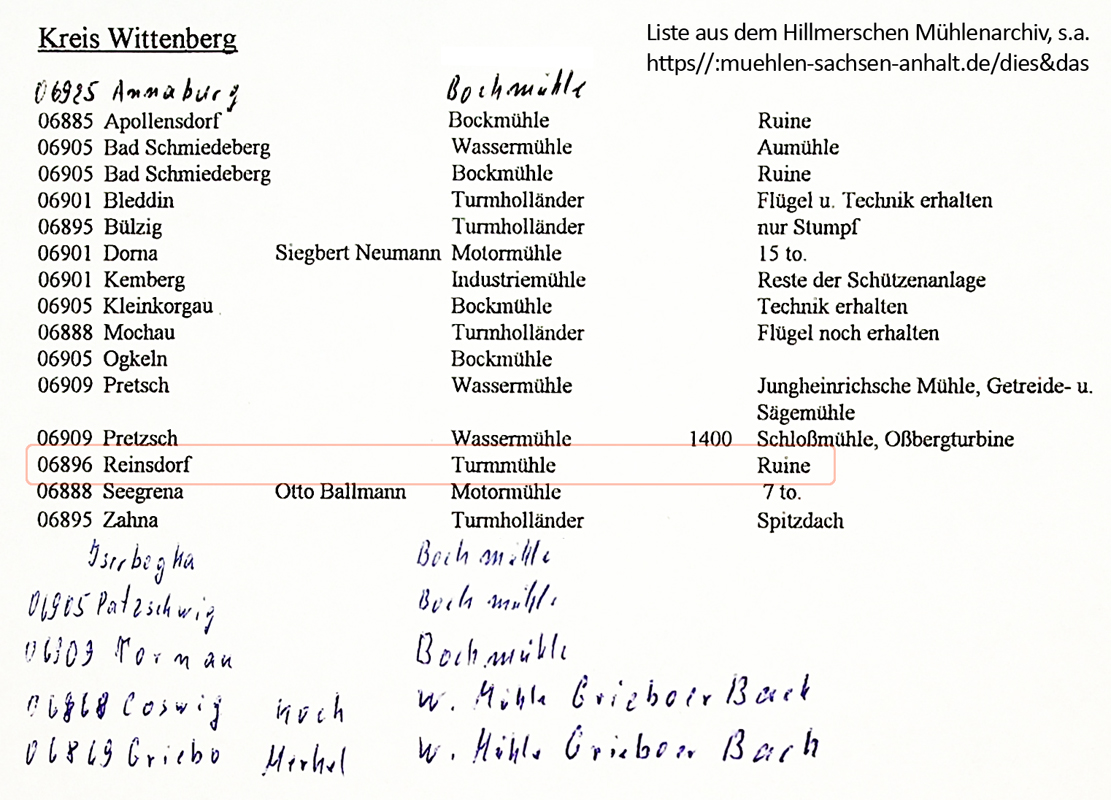 Kreis Wittenberg
Liste aus dem Hillmerschen Mühlenarchiv, s.a.
https//:muehlen-sachsen-anhalt.de/dies&das
06925 Annaburg Bockmühle
06885 Apollensdorf Bockmühle Ruine
06905 Bad Schmiedeberg Wassermühle Aumühle
06905 Bad Schmiedeberg Bockmühle Ruine
06901 Bleddin Turmholländer Flügel u. Technik erhalten
06895 Bülzig Turmholländer nur Stumpf
06901 Dorna Siegbert Neumann Motormühle 15 to.
06901 Kemberg Industriemühle Reste der Schützenanlage
06905 Kleinkorgau Bockmühle Technik erhalten
06888 Mochau Turmholländer Flügel noch erhalten
06905 Ogkeln Bockmühle
06909 Pretsch Wassermühle Jungheinrichsche Mühle, Getreide- u.
Sägemühle
06909 Pretzsch Wassermühle 1400 Schloßmühle, Oßbergturbine
06896 Reinsdorf Turmmühle Ruine
06888 Seegrena Otto Ballmann Motormühle 7 to.
06895 Zahna Turmholländer Spitzdach
Bockmühle
06905 Patzschwig Bockmühle
06909 Bockmühle
06868 Coswig Koch W. Mühle Grieboer Bach
06869 Griebo Merkel W. Mühle Grieboer Bach